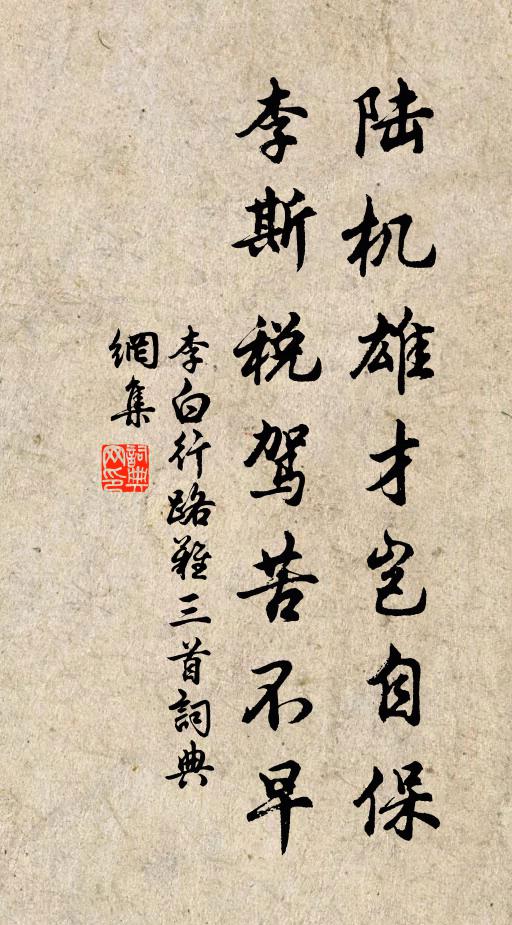 陆机雄才岂自保
李斯税驾苦不早
李白行路难三首詞典
網集
詞典
网印